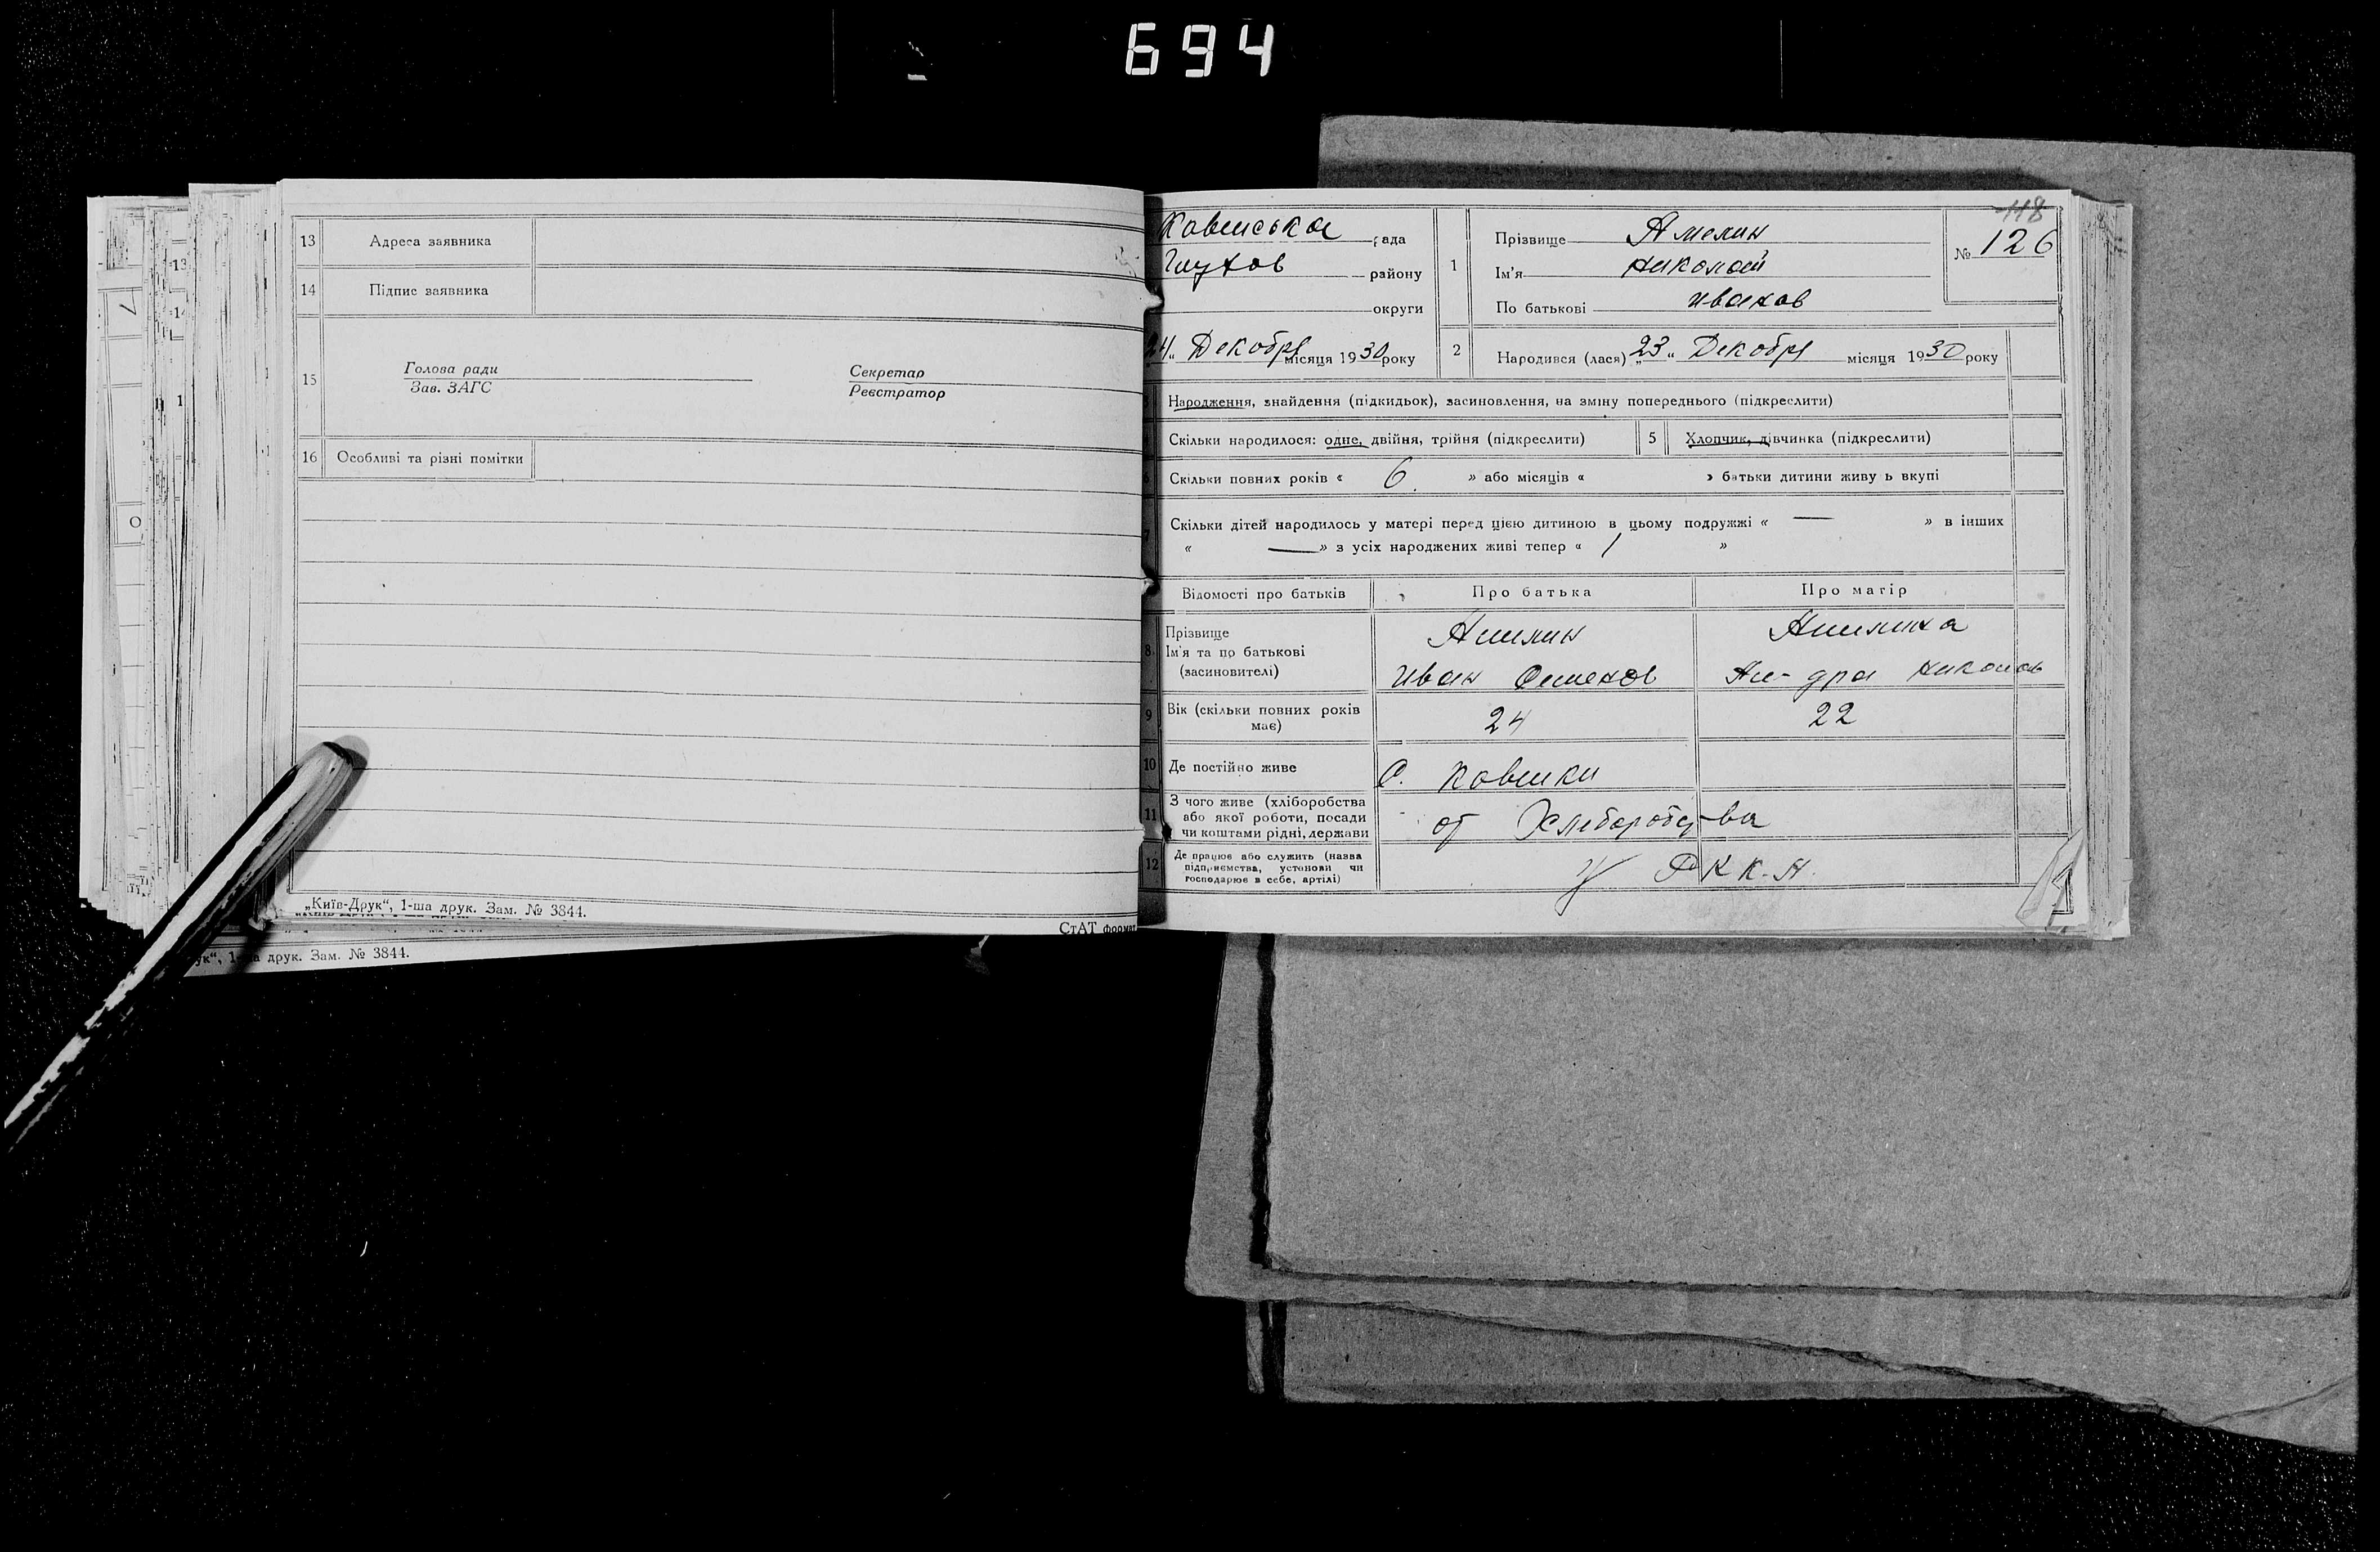 694
13 Адреса заявника
14 Підпис заявника
15 Голова ради Секретар
Зав. ЗАГС Реєстратор
16 Особливі та різні помітки
„Київ-Друк“, 1-ша друк. Зам. № 3844.
СтАТ формат
друк. Зам. № 3844.
118
рада
району
округи
1 Прізвище Амелин
Ім'я Николай
По батькові Иванов
№ 126
24 „ Декабря місяця 1930 року
2 Народився (лася) „23“ Декабря місяця 1930 року
Народження, знайдення (підкидьок), засиновлення, на зміну попереднього (підкреслити)
Скільки народилося: одне, двійня, трійня (підкреслити) 5 Хлопчик, дівчинка (підкреслити)
Скільки повних років « 6. » або місяців « » батьки дитини живу ь вкупі
Скільки дітей народилось у матері перед цією дитиною в цьому подружжі « — » в інших
« — » з усіх народжених живі тепер « 1 »
Відомості про батьків Про батька Про матір
8. Прізвище Амелин Амелина
Ім'я та по батькові
(засиновителі) Иван Семенов
9 Вік (скільки повних років має) 24 22
10 Де постійно живе С.
11 З чого живе (хліборобства
або якої роботи, посади
чи коштами рідні, держави от
12 Де працює або служить (назва
підприємства, установи чи
господарює в себе, артілі) У РККА.